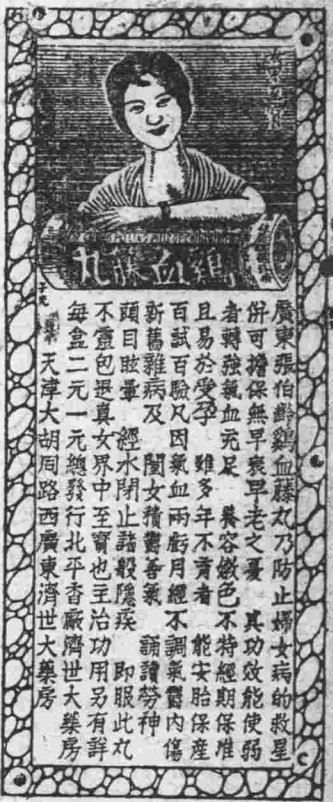 鷄血藤丸
廣東張伯齡鷄血藤丸乃防止婦女病的救星
併可擔保無早衰早老之憂　其功效能使弱
者轉強氣血充足　養容嫩色不特經期保准
且易於受孕　雖多年不育者　能安胎保産
百試百驗凡因氣血兩虧月經不調氣鬱內傷
新舊雜病及　閨女積鬱吞氣　誦讀勞神
頭目眩暈　經水閉止諸般隱疾　即服此丸
不靈包退真女界中至寳也主治功用另有詳
每盒二元一元總發行北平香廠濟世大藥房
天津大胡同路西廣東濟世大藥房